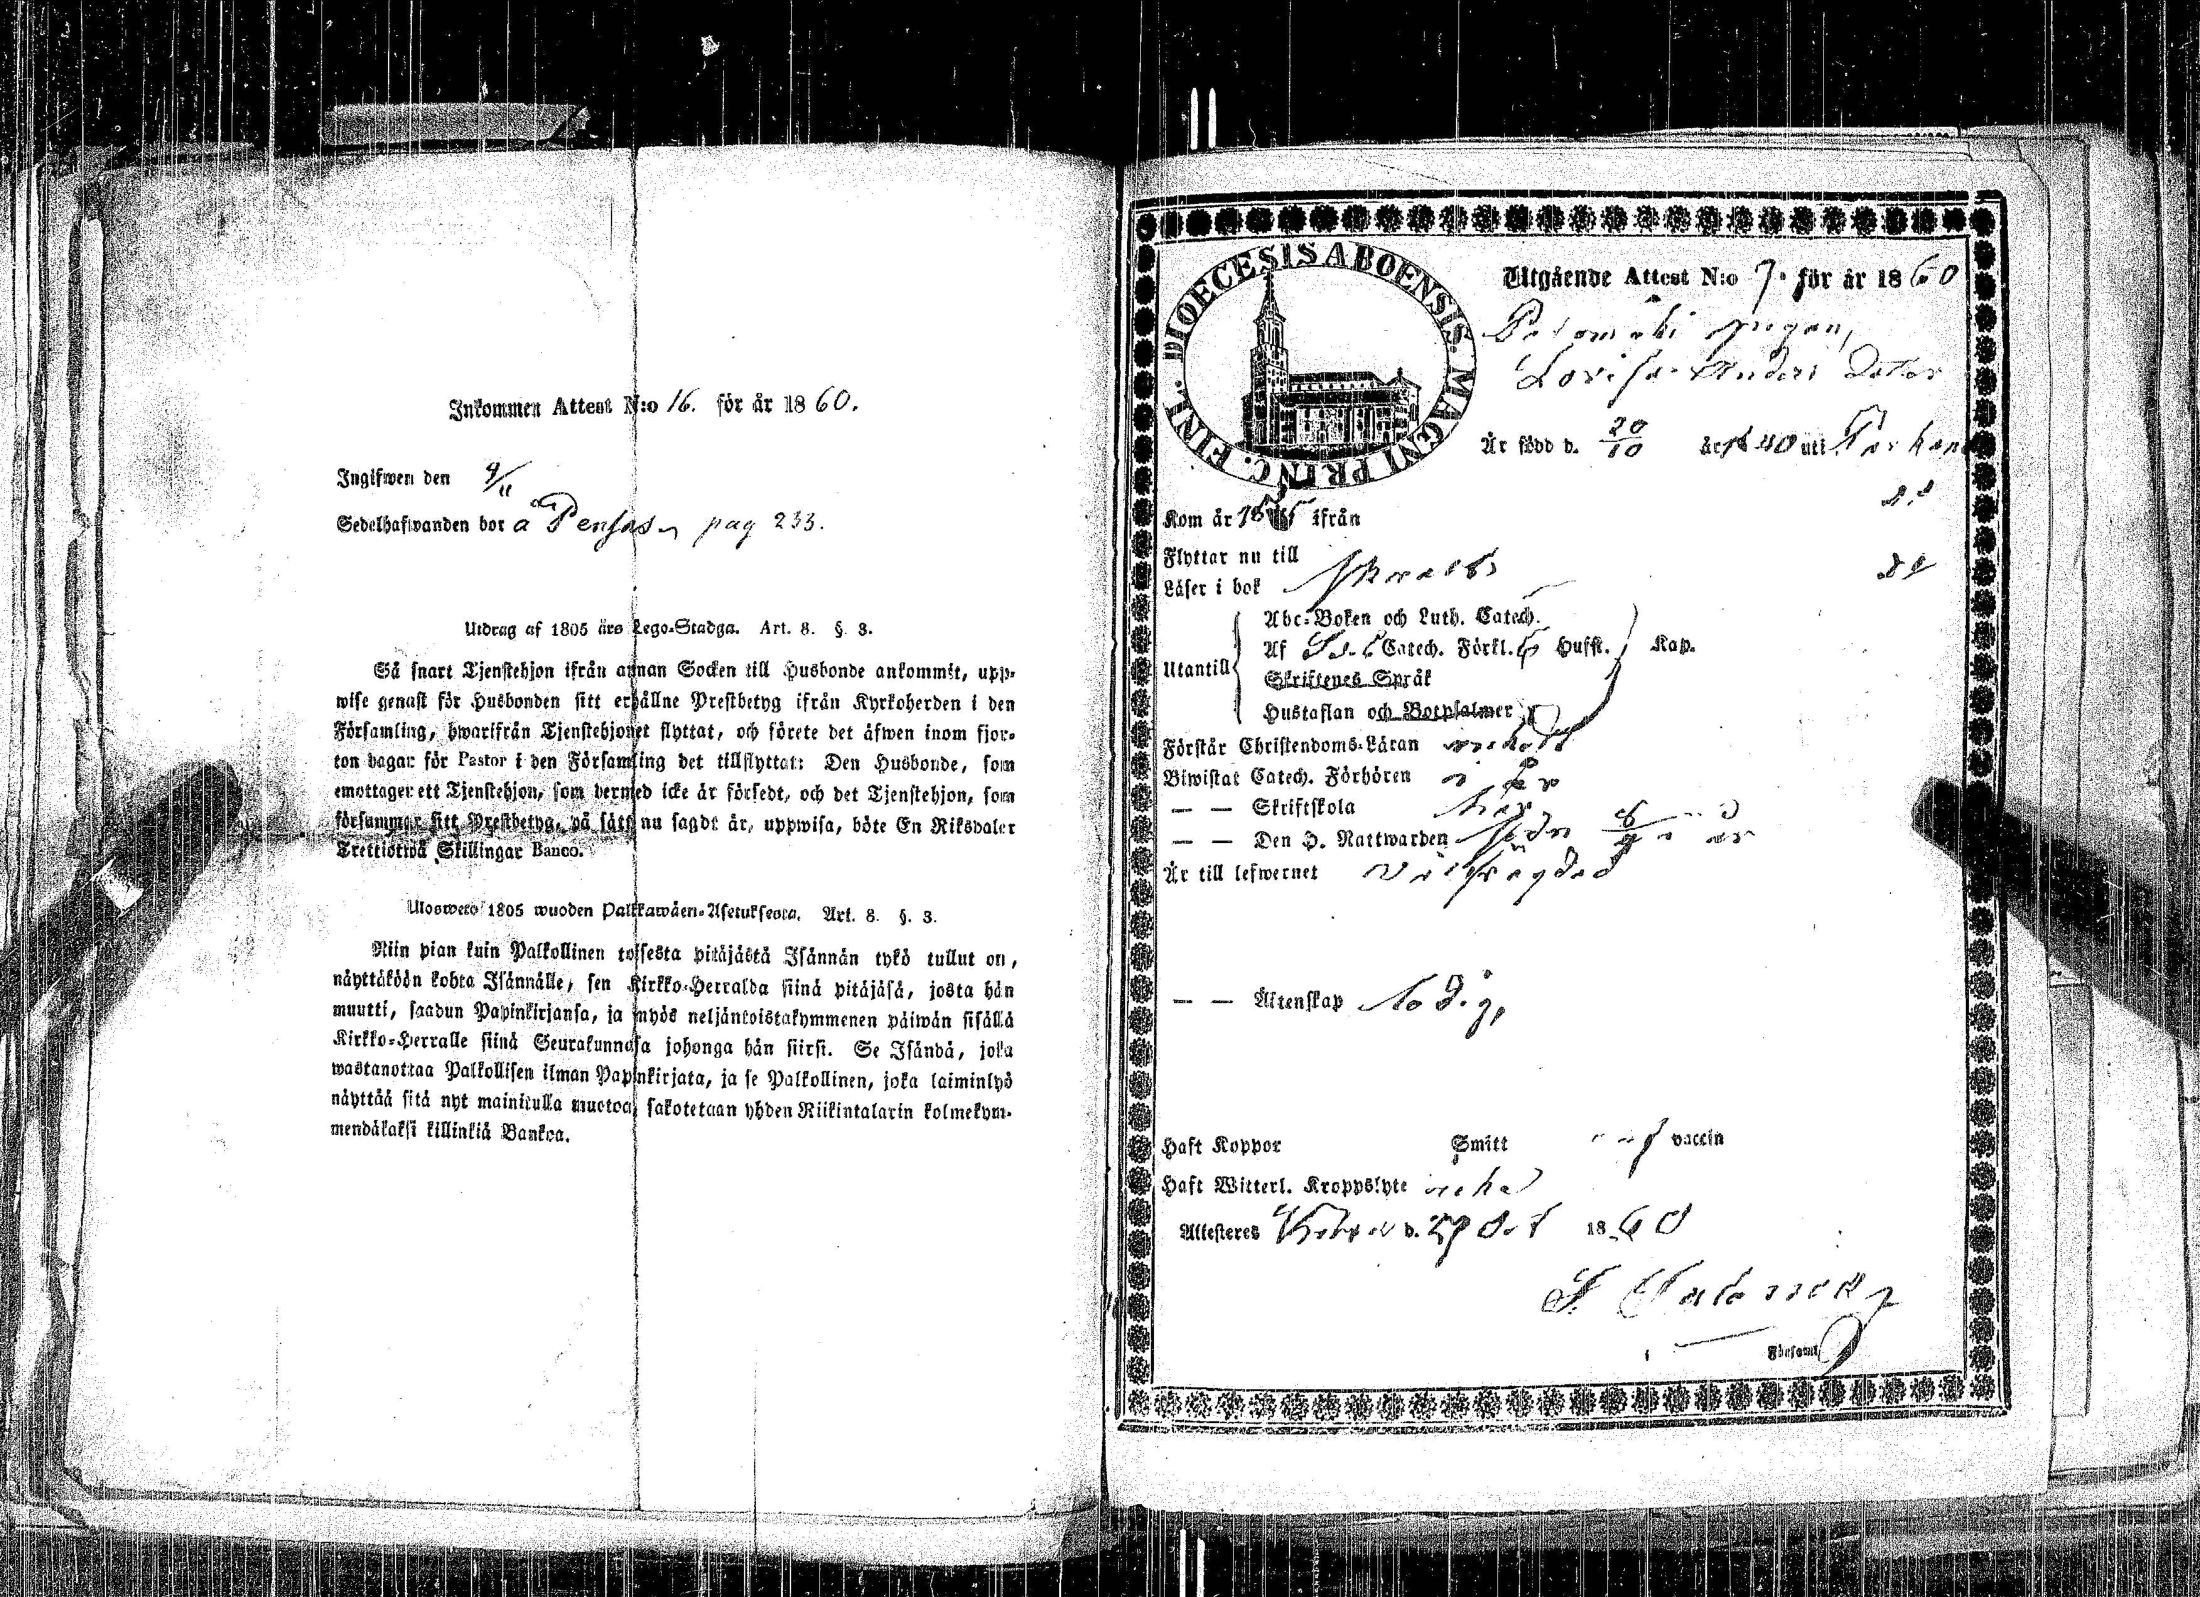 Inkommen Attest N:o 16. för år 1860.
Ingifwen den 9/11
Sedelhafwanden bor å pag 233.
Utdrag af 1805 års Lego-Stadga. Art. 8. §. 3.
Så snart Tjenstehjon ifrån annan Socken till Husbonde ankommit, upp-
wise genast för Husbonden sitt erhållne Prestbetyg ifrån Kyrkoherden i den
Församling, hwarifrån Tjenstehjonet flyttat, och förete det äfwen inom fjor-
ton dagar för Pastor i den Församling det tillflyttat: Den Husbonde, som
emottager ett Tjenstehjon, som dermed icke är försedt, och det Tjenstehjon, som
försummar sitt Prestbetyg, på sätt nu sagdt är, uppwisa, böte En Riksdaler
Trettiotwå Skillingar Banco.
Ulosweto 1805 wuoden Palkkawäen-Asetuksesta. Art. 8. §. 3.
Niin pian kuin Palkollinen toisesta pitäjästä Isännän tykö tullut on,
näyttäköön kohta Isännälle, sen Kirkko-Herralda siinä pitäjäsä, josta hän
muutti, saadun Papinkirjansa, ja myös neljäntoistakymmenen päiwän sisällä
Kirkko-Herralle siinä Seurakunnasa johonga hän siirsi. Se Isändä, joka
wastanottaa Palkollisen ilman Papinkirjata, ja se Palkollinen, joka laiminlyö
näyttää sitä nyt mainitulla muotoa, sakotetaan yhden Riikintalarin kolmekym-
mendäkaksi killinkiä Bankoa.
DIOECESIS ABOENSIS. MAGNI PRINC. FINL.
Utgående Attest N:o 7. för år 1860
pigan,
Lovisa Anders Dotter
Är född d. 20/10 år 1840 uti
Kom år ifrån
Flyttar nu till
Läser i bok
Abc-Boken och Luth. Catech.
Utantill Af Catech. Förkl. Hufst. Kap.
Skriftenes Språk
Hustaflan och Botpsalmer
Förstår Christendoms-Läran
Biwistat Catech. Förhören i år
— — Skriftskola här
— — Den H. Nattwarden
Är till lefwernet välfrägdad
— — Äktenskap ledig,
Haft Koppor Smitt vaccin
Haft Witterl. Kroppslyte icke
Attesteres d. 29 Oct 1860